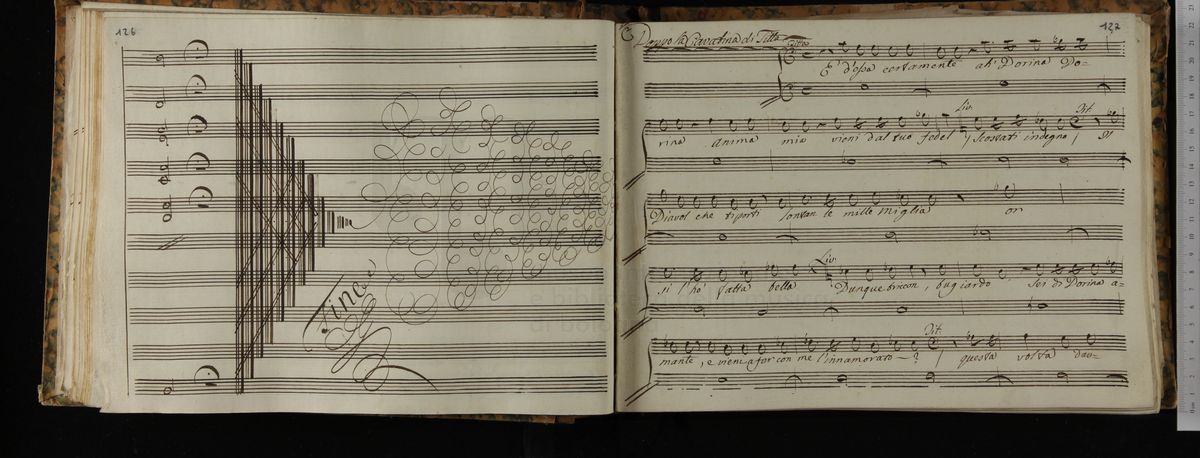 126
Fine
127
Doppo la Cavatina di Titta
Titta
È d'essa certamente ah! Dorina Do-
Liv. Tit.
rina anima mia vieni dal tuo fedel scostati indegno Il
Diavol che ti porti lontan le mille miglia or
Liv.
si l'ho fatta bella Dunque briccon, bugiardo Sei di Dorina a-
Tit.
mante, e vieni a far con me l'innamorato—? questa volta dav-